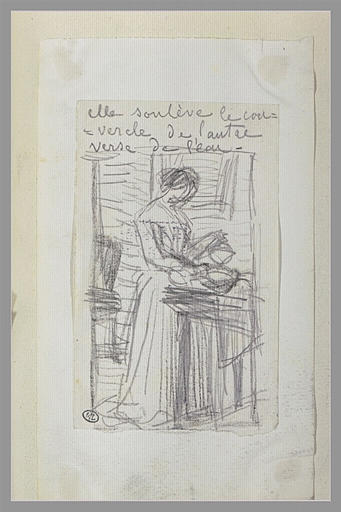 elle soulève le cou=
=vercle de l'autre
verse de l'eau -